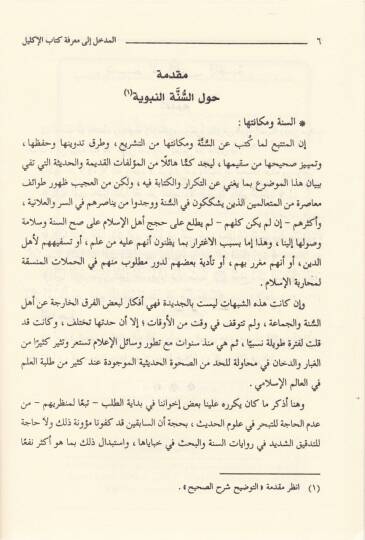 ٦ المدخل إلى معرفة كتاب الإكليل
مقدمة
حول السُّنَّة النبوية(١)
* السنة ومكانتها :
إن المتتبع لما كُتب عن السُّنَّة ومكانتها من التشريع، وطرق تدوينها وحفظها،
وتمييز صحيحها من سقيمها، ليجد كمًّا هائلًا من المؤلفات القديمة والحديثة التي تفي
ببيان هذا الموضوع بما يغني عن التكرار والكتابة فيه، ولكن من العجيب ظهور طوائف
معاصرة من المتعالمين الذين يشككون في السُّنة ووجدوا من يناصرهم في السر والعلانية،
وأكثرهم - إن لم يكن كلهم - لم يطلع على حجج أهل الإسلام على صح السنة وسلامة
وصولها إلينا، وهذا إما بسبب الاغترار بما يظنون أنهم عليه من علم، أو تسفيههم لأهل
الدين، أو أنهم مغرر بهم، أو تأدية بعضهم لدور مطلوب منهم في الحملات المنسقة
لمحاربة الإسلام .
وإن كانت هذه الشبهات ليست بالجديدة فهي أفكار لبعض الفرق الخارجة عن أهل
السُّنة والجماعة، ولم تتوقف في وقت من الأوقات؛ إلا أن حدتها تختلف، وكانت قد
قلت لفترة طويلة نسبيًا، ثم هي منذ سنوات مع تطور وسائل الإعلام تستعر وتثير كثيرًا من
الغبار والدخان في محاولة للحد من الصحوة الحديثية الموجودة عند كثير من طلبة العلم
في العالم الإسلامي .
وهنا أذكر ما كان يكرره علينا بعض إخواننا في بداية الطلب - تبعًا لمنظريهم - من
عدم الحاجة للتبحر في علوم الحديث، بحجة أن السابقين قد كفونا مؤونة ذلك ولا حاجة
للتدقيق الشديد في روايات السنة والبحث في خباياها، واستبدال ذلك بما هو أكثر نفعًا
(١) انظر مقدمة «التوضيح شرح الصحيح» .